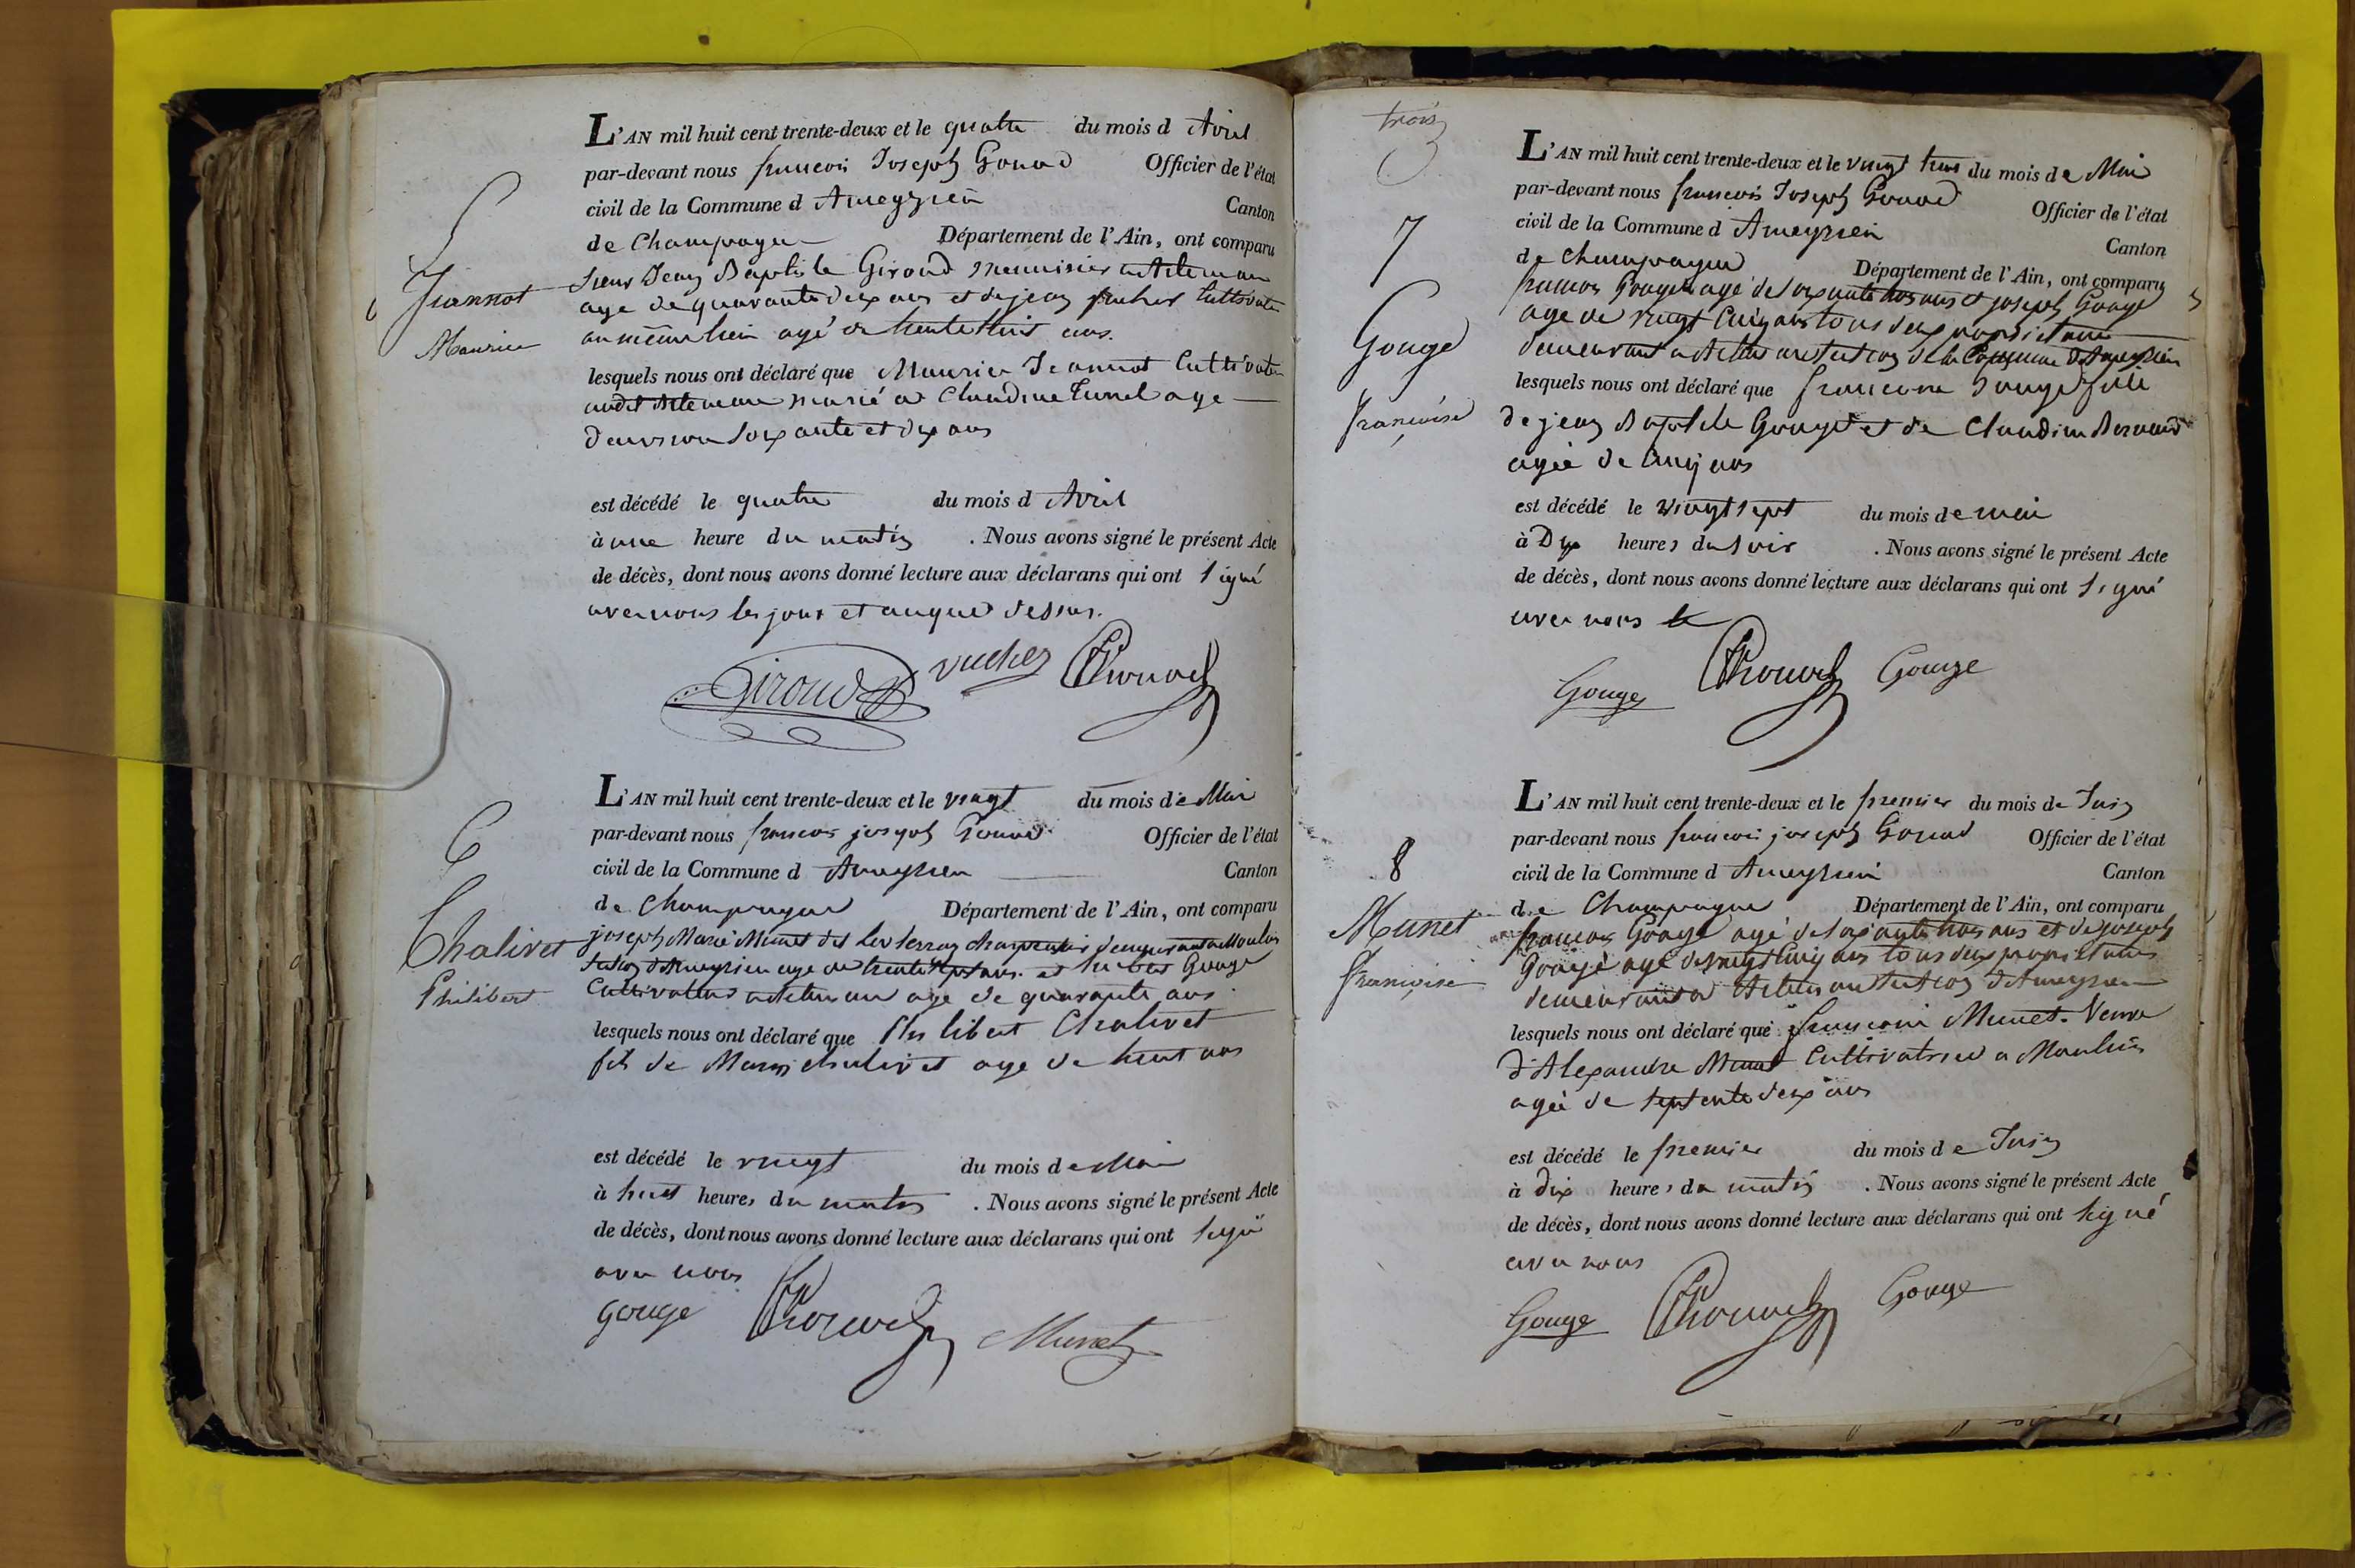 5
Jeannot
Maurice
L'AN mil huit cent trente-deux et le quatre du mois d Avril
par-devant nous francois Joseph Gonod Officier de l'état
civil de la Commune d Ameyzieu Canton
de Champagne Département de l'Ain, ont comparu
sieur Jean Baptiste Giroud menuisier
age de quarante deux ans et de jean vucher Cultivateur
au même lieu agé de trente huit ans.
lesquels nous ont déclaré que Maurice Jeannot Cultivateur
audit marié a Claudine age
denviron soixante et dix ans
est décédé le quatre du mois d Avril
à une heure du matin . Nous avons signé le présent Acte
de décès, dont nous avons donné lecture aux déclarans qui ont signé
avec nous les jour et an que dessus.
Giroud vucher Gonod
6
Chalivet
Philibert
L'AN mil huit cent trente-deux et le vingt du mois de Mai
par-devant nous francois joseph Gonod Officier de l'état
civil de la Commune d Ameyzieu Canton
de Champagne Département de l'Ain, ont comparu
joseph Marie Munet dit charpentier demeurant a Moulin
d'Ameyzieu age de trente sept ans et Gouge
Cultivateur age de quarante ans
lesquels nous ont déclaré que Philibert Chalivet
fils de chalivet age de huit ans
est décédé le vingt du mois de Mai
à huit heures du matin . Nous avons signé le présent Acte
de décès, dont nous avons donné lecture aux déclarans qui ont signé
avec nous
gouge Gonod Munet
trois
3
7
Gouge
françoise
L'AN mil huit cent trente-deux et le vingt huit du mois de Mai
par-devant nous francois Joseph Gonod Officier de l'état
civil de la Commune d Ameyzieu Canton
de Champagne Département de l'Ain, ont comparu
francois Gouge agé de soixante trois ans et joseph Gouge
age de vingt cinq ans tous deux propriétaire
demeurant a de la Commune d'Ameyzieu
lesquels nous ont déclaré que francoise Gouge fille
de jean Baptiste Gouge et de Claudine Bernard
agée de cinq ans
est décédé le vingt sept du mois de mai
à Dix heures du soir . Nous avons signé le présent Acte
de décès, dont nous avons donné lecture aux déclarans qui ont signé
avec nous
Gouge Gonod Gouge
8
Munet
françoise
L'AN mil huit cent trente-deux et le premier du mois de Juin
par-devant nous francois joseph Gonod Officier de l'état
civil de la Commune d Ameyzieu Canton
de Champagne Département de l'Ain, ont comparu
francois Gouge agé de soixante trois ans et de joseph
Gouge agé de vingt cinq ans tous deux propriétaires
demeurant a d'Ameyzieu
lesquels nous ont déclaré que francoise Munet Veuve
d'Alexandre Munet Cultivatrice a Moulin
agée de septente deux ans
est décédé le premier du mois de Juin
à dix heures du matin . Nous avons signé le présent Acte
de décès, dont nous avons donné lecture aux déclarans qui ont signé
avec nous
Gouge Gonod Gouge